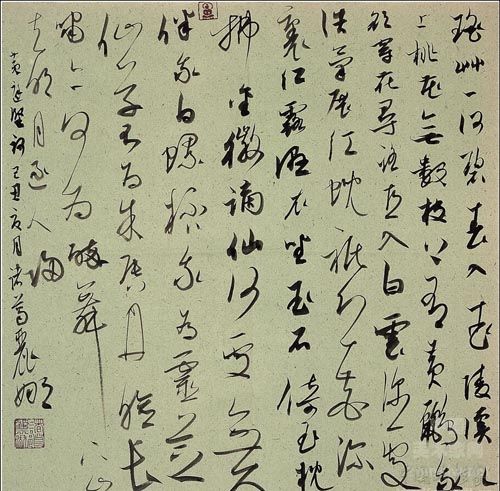 瑶艸一何碧春入武陵溪
上桃花無數枝上有黄鸝我
欲穿花尋路直入白雲深處
浩氣展虹蜺祇恐花深
裏紅露濕衣坐玉石倚玉枕
拂金徽謫仙何處無人
伴我白螺杯我為靈芝
仙草不為朱唇丹臉長
嘯亦何為醉舞下山
去明月逐人歸
黄庭堅詞己丑夏月諸葛麗娜